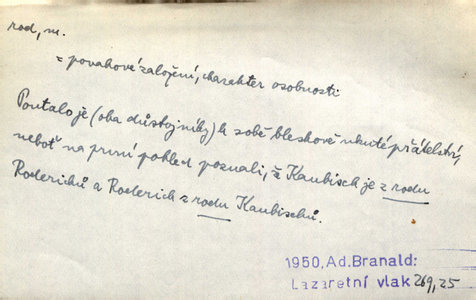 rod, m.
= povahové založení, charakter osobnosti
Poutalo je (oba důstojníky) k sobě bleskově ukuté přátelství,
neboť na první pohled poznali, že Kaubisch je z rodu
Roderichů a Roderich z rodu Kaubischů.
1950, Ad. Branald:
Lazaretní vlak 269, 25